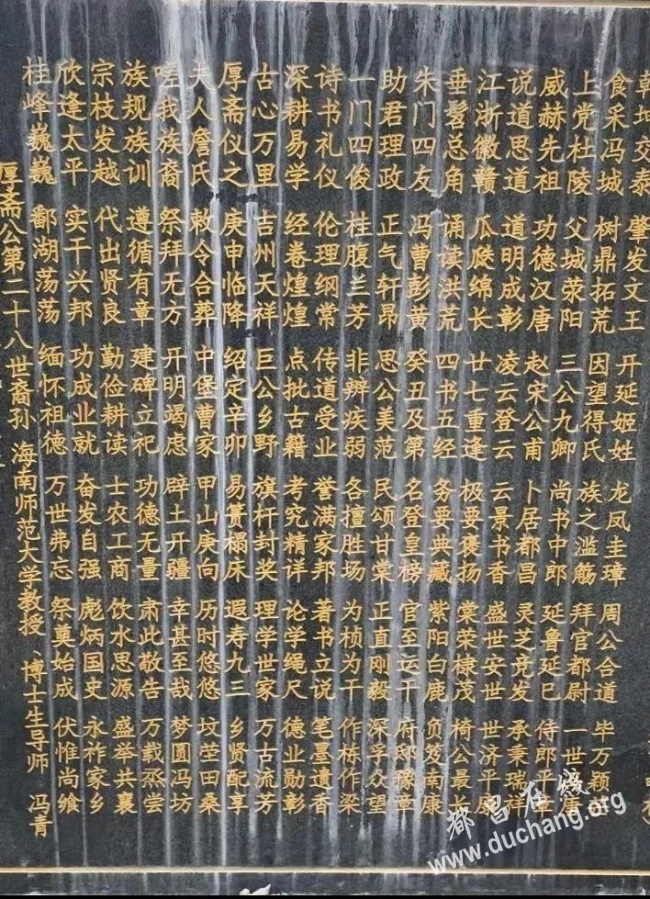 乾坤交泰 肇发文王 开延姬姓 龙凤圭璋 周公合道 毕万颖
食采冯城 树鼎拓荒 因望得氏 族之滥觞 拜官都尉 一世
上党杜陵 父城荥阳 三公九卿 尚书中郎 延鲁延巳 侍郎平章
威赫先祖 功德汉唐 赵宋公甫 卜居都昌 灵芝竞发 承秉瑞祥
说道思道 道明成彰 凌云登云 云景书香 盛世安世 世济平康
江浙徽赣 瓜瓞绵长 廿七重逢 极要褒扬 棠荣棣茂 椅公最长
垂髫总角 诵读洪荒 四书五经 务要典藏 紫阳白鹿 负笈南康
朱门四友 冯曹彭黄 癸丑及第 名登皇榜 官至运干 府邸豫章
助君理政 正气轩昂 思公美范 民颂甘棠 正直刚毅 深孚众望
一门四俊 桂腹兰芳 非辨疾弱 各擅胜场 为桢为干 作栋作梁
诗书礼仪 伦理纲常 传道受业 誉满家邦 著书立说 笔墨遗香
深耕易学 经卷煌煌 点批古籍 考究精详 论学绳尺 德业勋彰
古心万里 吉州天祥 巨公乡野 旗杆封奖 理学世家 万古流芳
厚斋仪之 庚申临降 绍定辛卯 易箦榻床 遐寿九三 乡贤配享
夫人詹氏 敕令合葬 中堡曹家 甲山庚向 历时悠悠 坟茔田桑
嗟我族裔 祭拜无方 开明竭虑 辟土开疆 幸甚至哉 梦圆冯坊
族规族训 遵循有章 建碑立祀 功德无量 肃此敬告 万载烝尝
宗枝发越 代出贤良 勤俭耕读 士农工商 饮水思源 盛举共襄
欣逢太平 实干兴邦 功成业就 奋发自强 彪炳国史 永祚家乡
桂峰巍巍 鄱湖荡荡 缅怀祖德 万世弗忘 祭奠始成 伏惟尚飨
厚斋公第二十八世裔孙 海南师范大学教授、博士生导师 冯青
都昌在线
www.duchang.org